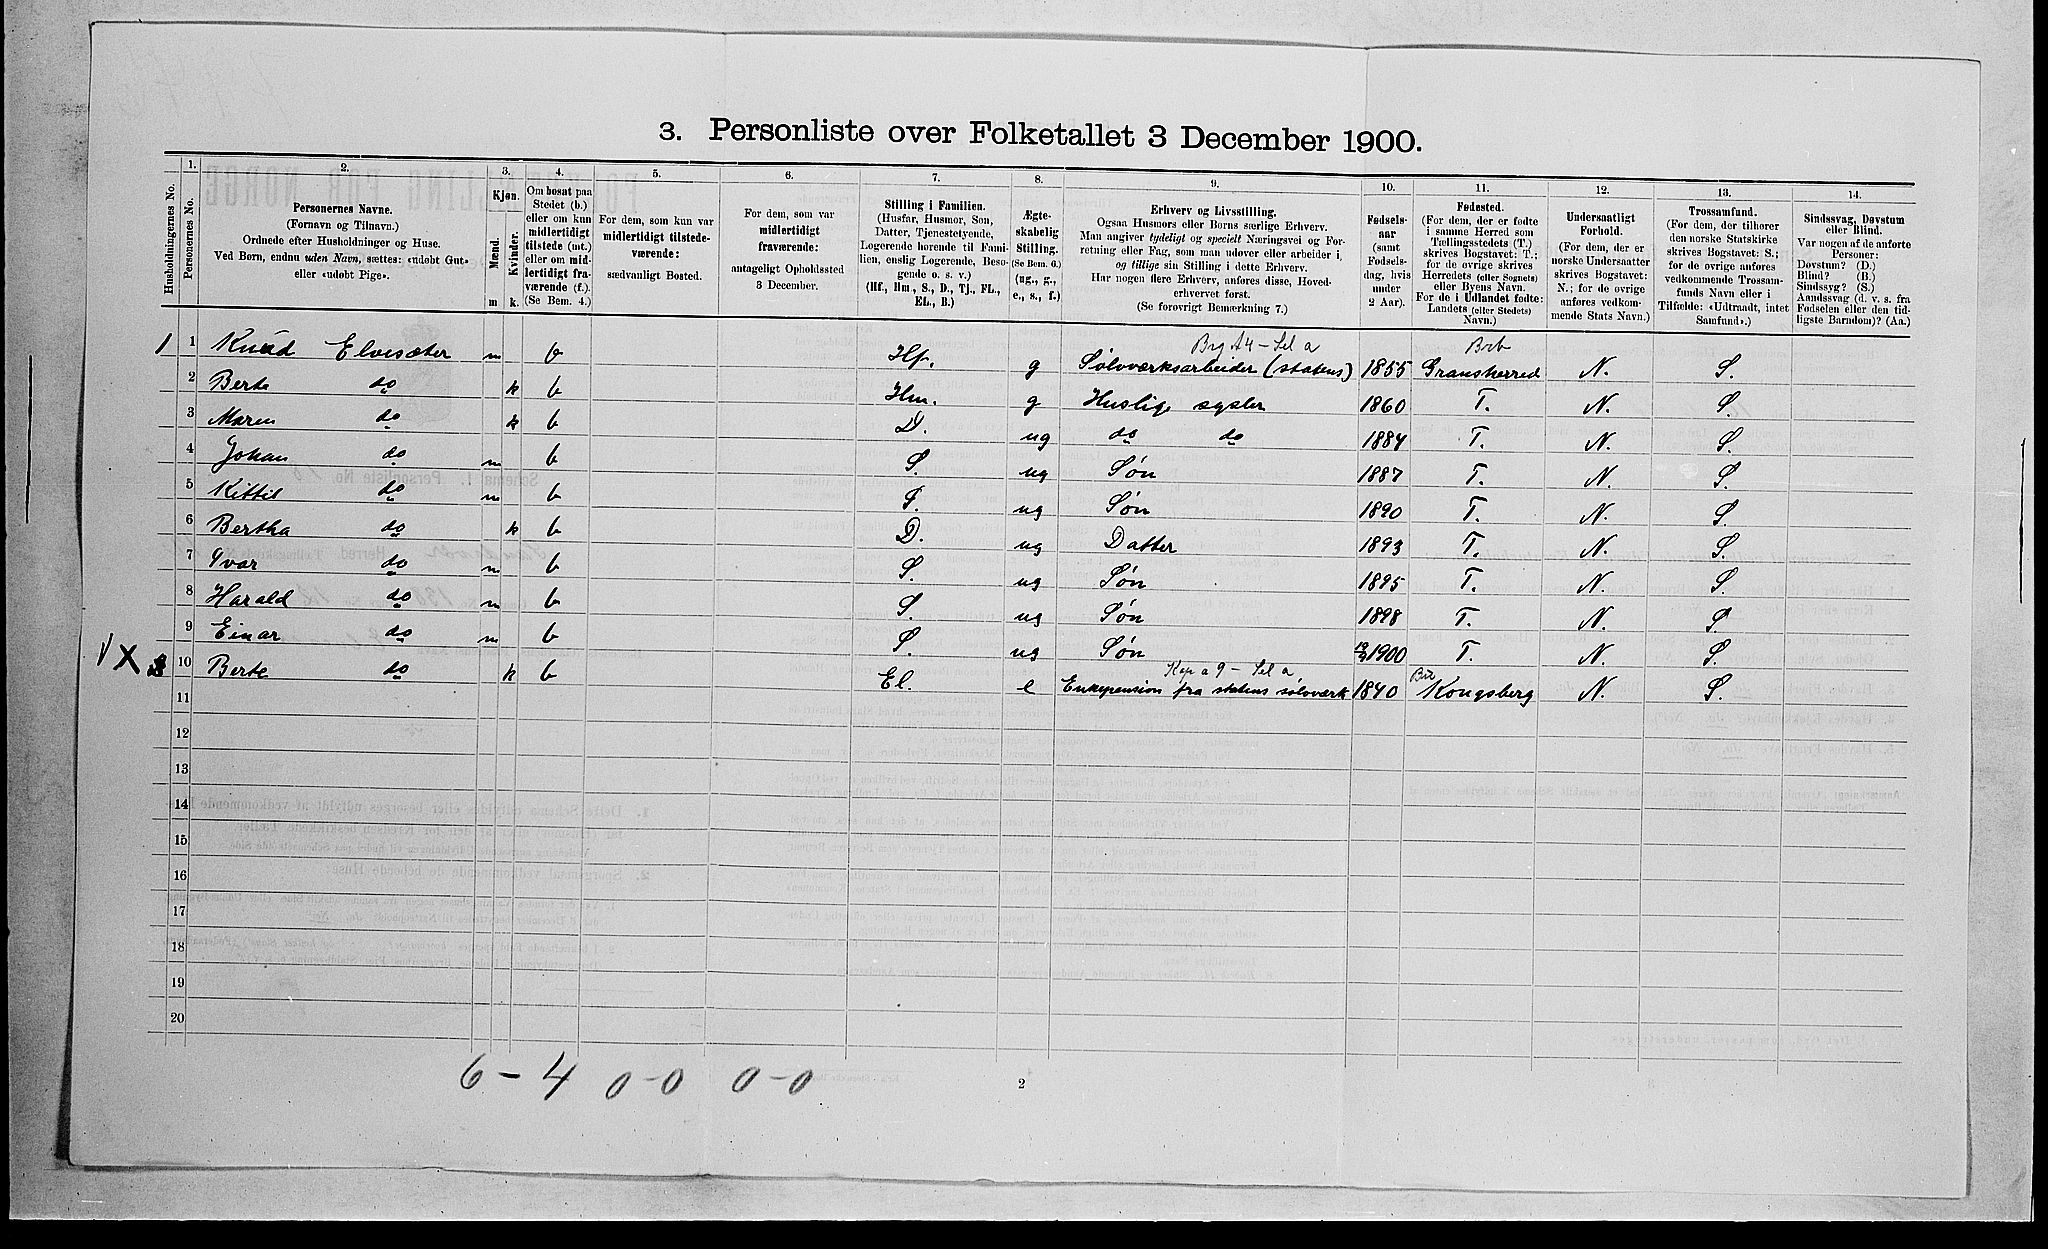 3. Personliste over Folketallet 3 December 1900.
Husholdningernes No.
1.
Personernes No.
2.
Personernes Navne.
(Fornavn og Tilnavn.)
Ordnede efter Husholdninger og Huse.
Ved Børn, endnu uden Navn, sættes: «udøbt Gut»
eller «udøbt Pige».
3.
Kjøn.
Mænd.
Kvinder.
m
k.
4.
Om bosat paa
Stedet (b.)
eller om kun
midlertidigt
tilstede (mt.)
eller om mid-
lertidigt fra-
værende (f.).
(Se Bem. 4.)
5.
For dem, som kun var
midlertidigt tilstede-
værende:
sædvanligt Bosted.
6.
For dem, som var
midlertidigt
fraværende:
antageligt Opholdssted
3 December.
7.
Stilling i Familien.
(Husfar, Husmor, Søn,
Datter, Tjenestetyende,
Logerende hørende til Fami-
lien, enslig Logerende, Beso-
gende o. s. v.)
(Hf., Hm., S., D., Tj., FL.,
EL., B.)
8.
Ægte-
skabelig
Stilling.
(Se Bem. 6.)
(ug., g.,
e., s., f.)
9.
Erhverv og Livsstilling.
Ogsaa Husmors eller Børns særlige Erhverv.
Man angiver tydeligt og specielt Næringsvei og For-
retning eller Fag, som man udøver eller arbeider i,
og tillige sin Stilling i dette Erhverv.
Har nogen flere Erhverv, anføres disse, Hoved-
erhvervet først.
(Se forøvrigt Bemærkning 7.)
10.
Fødsels-
aar
(samt
Fødsels-
dag, hvis
under
2 Aar).
11.
Fødested.
(For dem, der er fødte
i samme Herred som
Tællingsstedets (T.)
skrives Bogstavet: T.;
for de øvrige skrives
Herredets (eller Sognets)
eller Byens Navn.
For de i Udlandet fødte:
Landets (eller Stedets)
Navn.)
12.
Undersaatligt
Forhold.
(For dem, der er
norske Undersaatter
skrives Bogstavet:
N.; for de øvrige
anføres vedkom-
mende Stats Navn.)
13.
Trossamfund.
(For dem, der tilhører
den norske Statskirke
skrives Bogstavet: S.;
for de øvrige anføres
vedkommende Trossam-
funds Navn eller i
Tilfælde: «Udtraadt, intet
Samfund».)
14.
Sindssvag, Døvstum
eller Blind.
Var nogen af de anførte
Personer:
Døvstum? (D.)
Blind? (B.)
Sindssyg? (S.)
Aandssvag (d. v. s. fra
Fødselen eller den tid-
ligste Barndom)? (Aa.)
1 1 Knud Elvesæter m b Hf. g Sølvværksarbeider (statens) 1855 Gransherred N. S.
2 Berte do k b Hm. g Huslige sysler 1860 T. N. S.
3 Maren do k b D. ug do do 1884 T. N. S.
4 Johan do m b S. ug Søn 1887 T. N. S.
5 Kittil do m b S. ug Søn 1890 T. N. S.
6 Bertha do k b D. ug Datter 1893 T. N. S.
7 Ivar do m b S. ug Søn 1895 T. N. S.
8 Harald do m b S. ug Søn 1898 T. N. S.
9 Einar do m b S. ug Søn 1900 T. N. S.
X 10 Berte do k b El. e Enkepension fra statens sølvværk 1840 Kongsberg N. S.
11
12
13
14
15
16
17
18
19
20
6 - 4 0-0 0-0
2